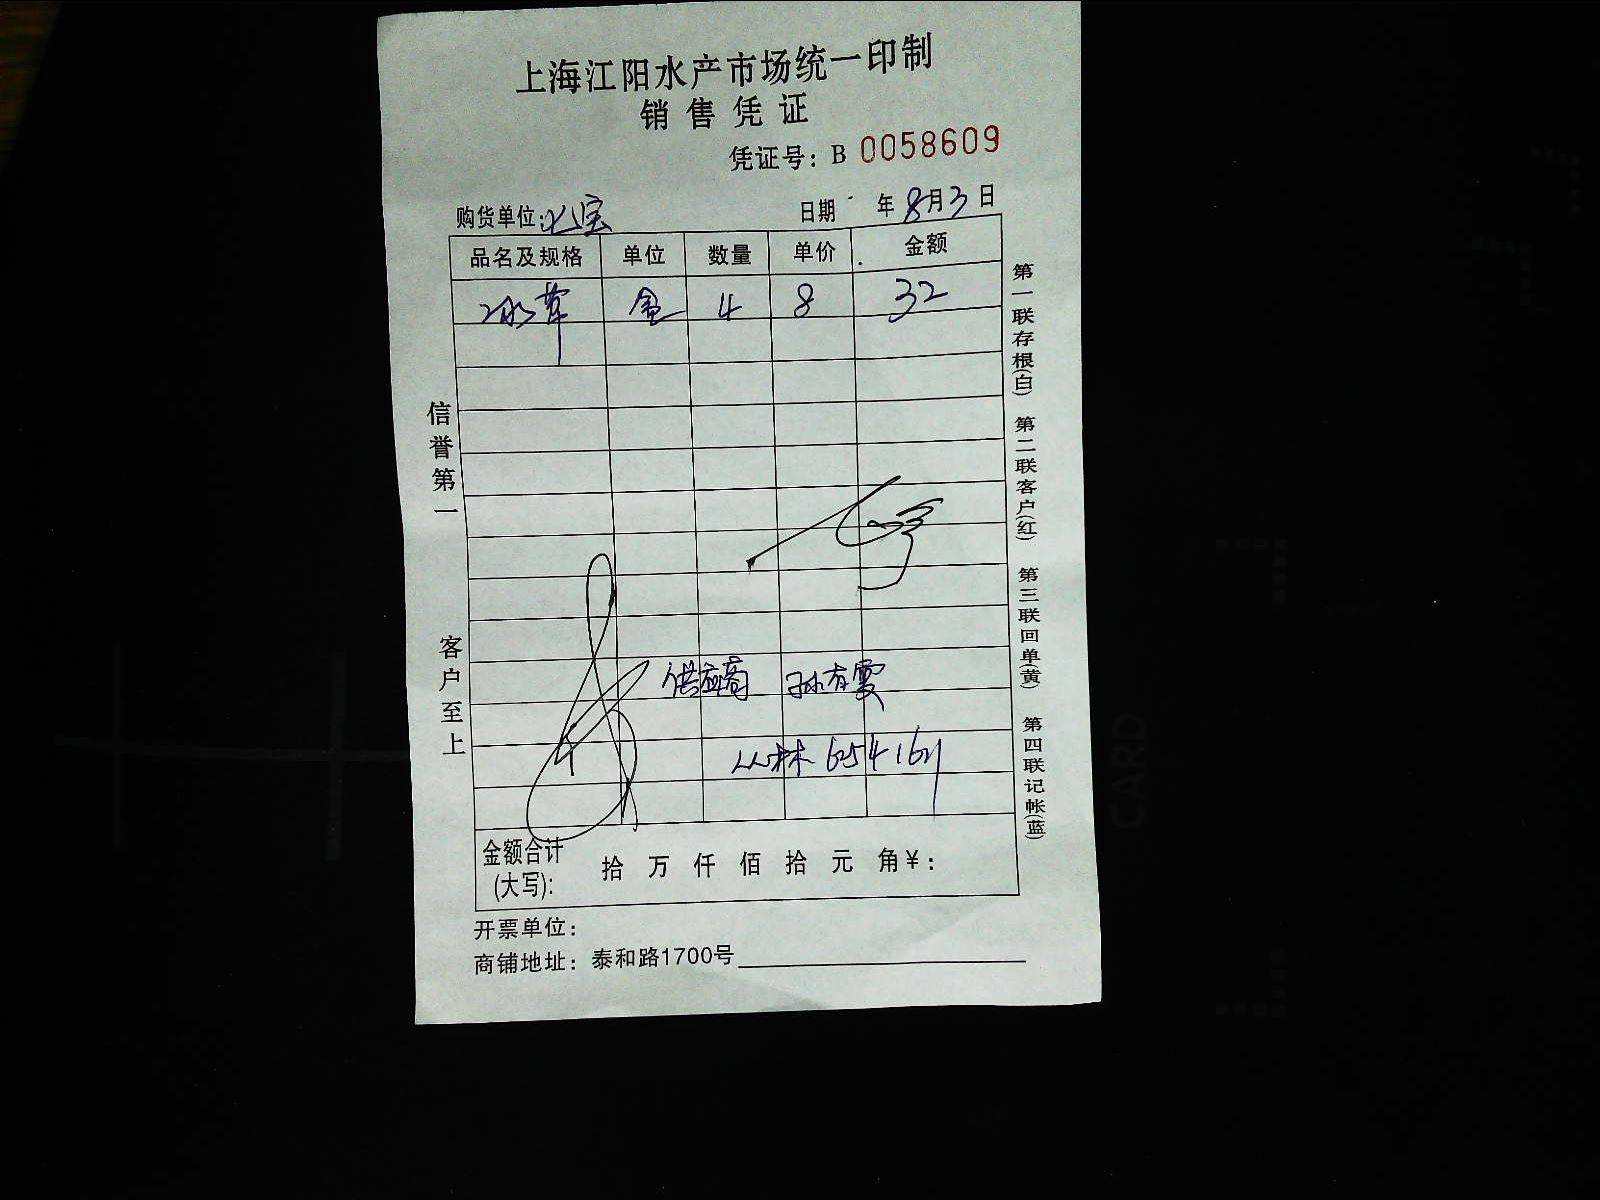 上海江阳水产市场统一印制
销售凭证
凭证号：B 0058609
购货单位：七宝
日期 年8月3日
品名及规格 单位 数量 单价 金额
冰草 盒 4 8 32
供应商 孙有雯
丛林 654164
金额合计(大写)： 拾 万 仟 佰 拾 元 角￥：
开票单位：
商铺地址：泰和路1700号
信誉第一 客户至上
第一联存根(白) 第二联客户(红) 第三联回单(黄) 第四联记帐(蓝)
CARD